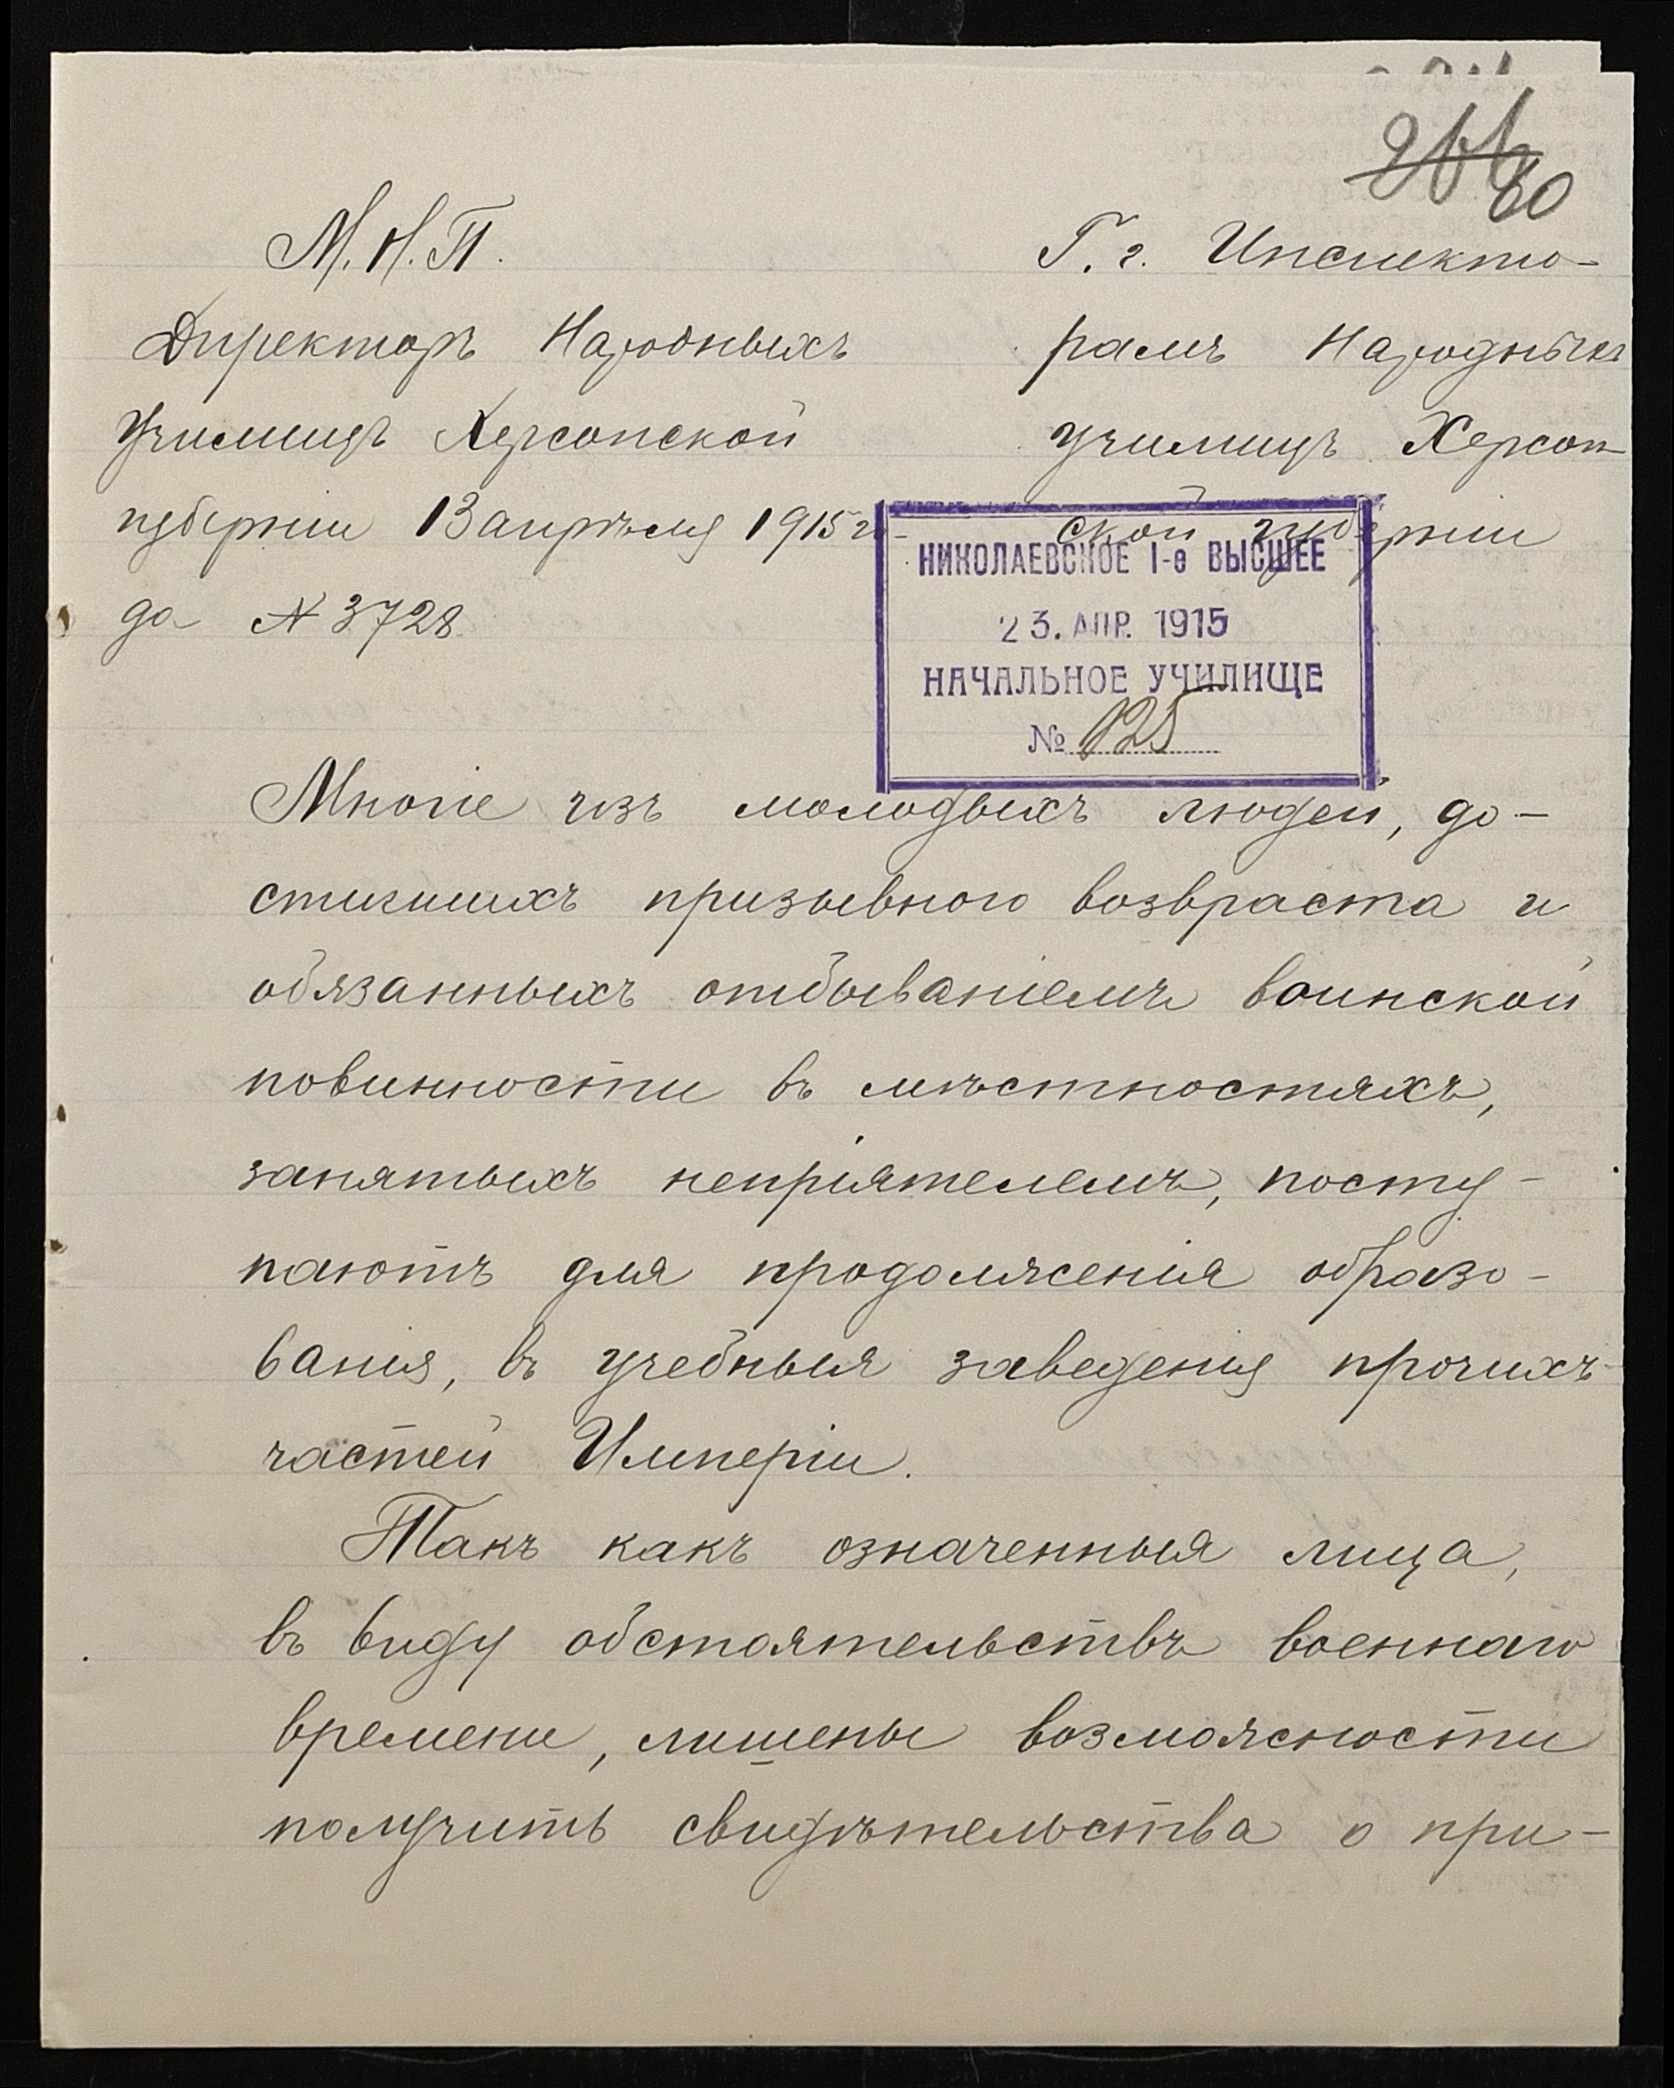 60
М. Н. П.
Директоръ Народныхъ
Училищъ Херсонской
губерніи 13 апрѣля 1915 го-
да № 3728
Г. г. Инспекто-
рамъ Народныхъ
училищъ Херсон-
ской губерніи
НИКОЛАЕВСКОЕ I-е ВЫСШЕЕ
23. АПР. 1915
НАЧАЛЬНОЕ УЧИЛИЩЕ
№ 125
Многіе изъ молодыхъ людей, до-
стигшихъ призывного возвраста и
обязанныхъ отбываніемъ воинской
повинности въ мѣстностяхъ,
занятыхъ непріятелемъ, посту-
паютъ для продолженія образо-
ванія, въ учебныя заведенія прочихъ
частей Имперіи.
Такъ какъ означенныя лица,
въ виду обстоятельствъ военнаго
времени, лишены возможности
получить свидѣтельства о при-